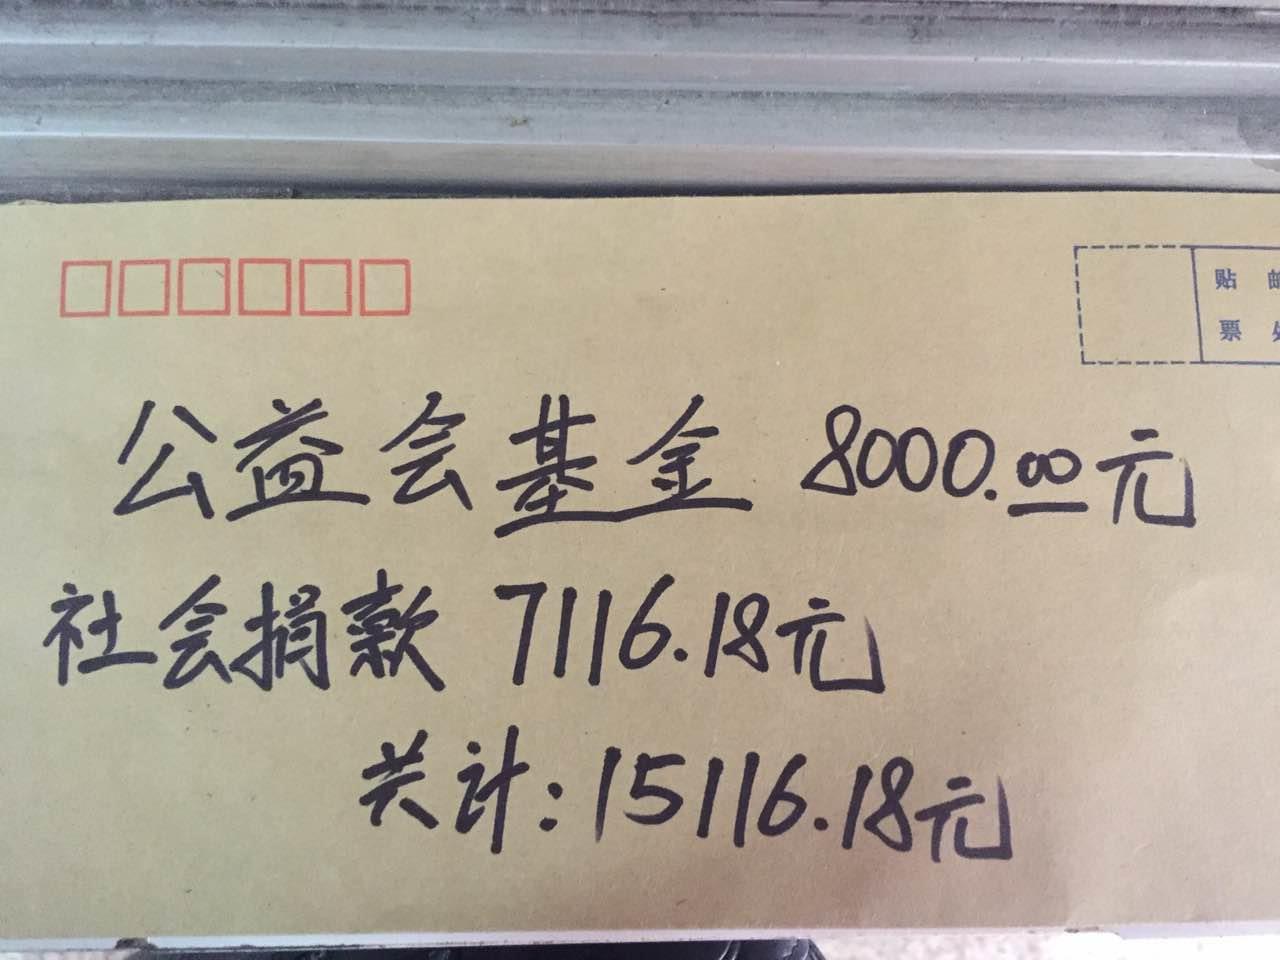 贴
票
公益会基金 8000.00元
社会捐款 7116.18元
共计:15116.18元